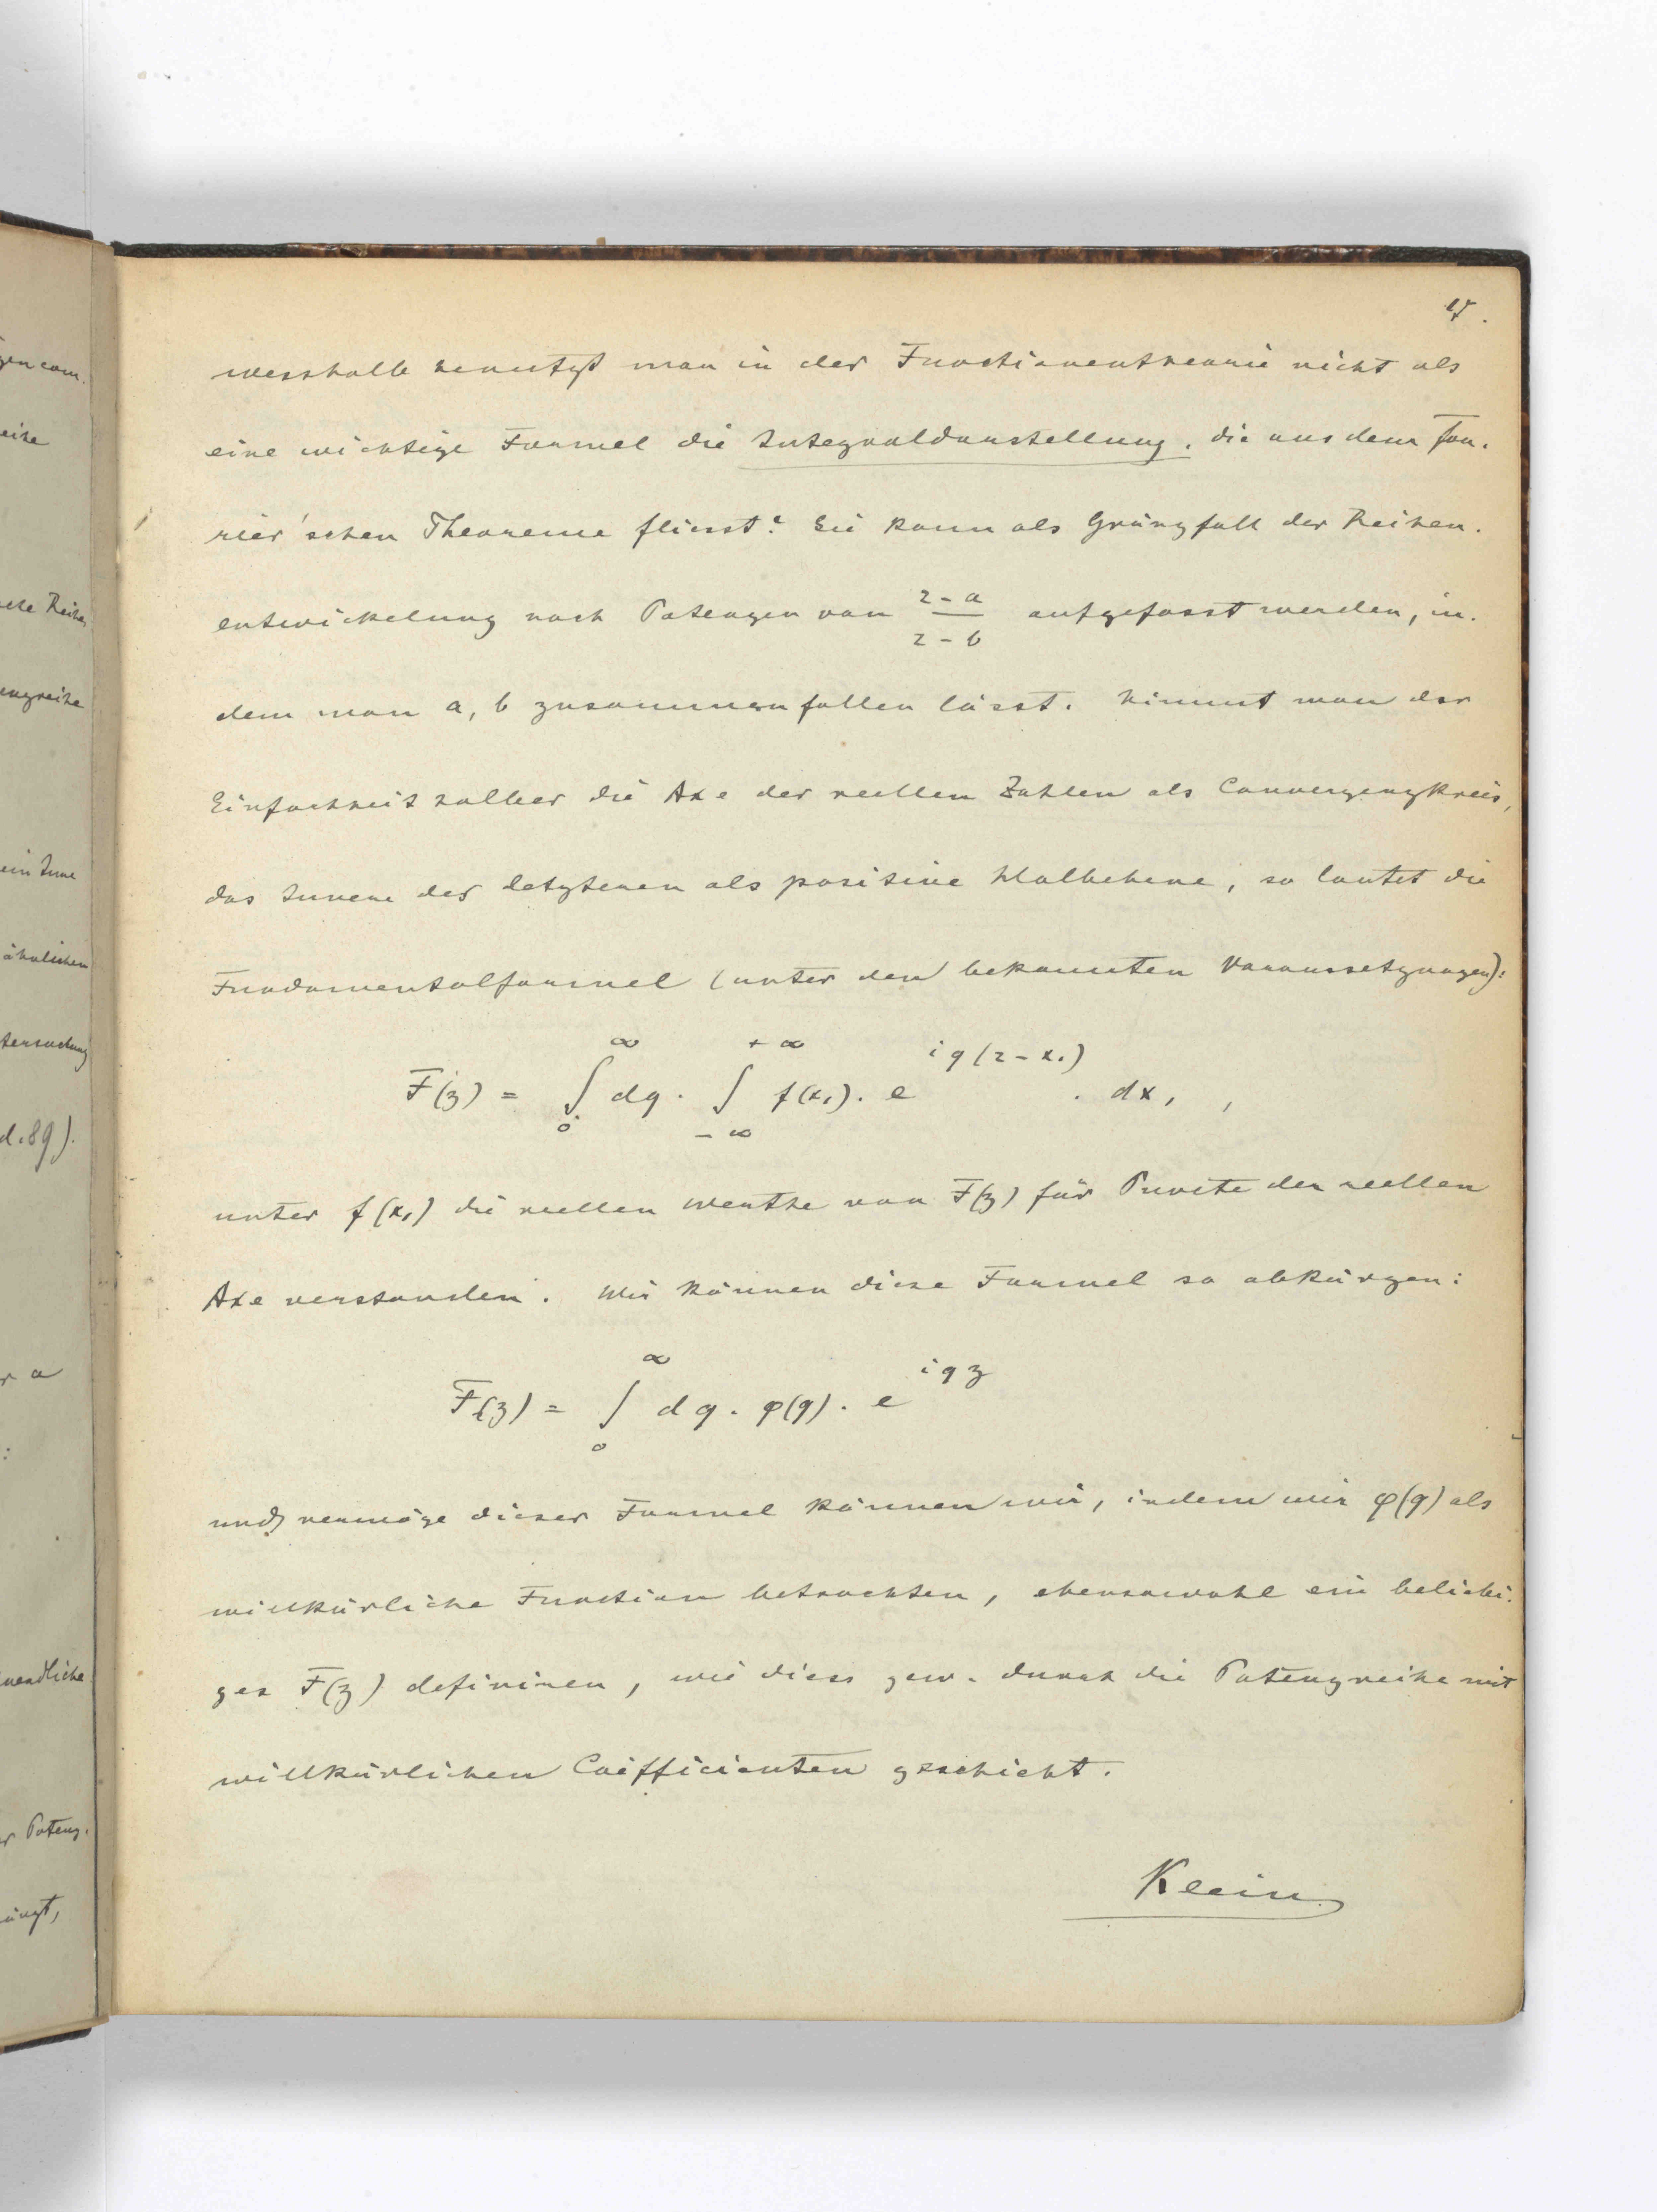 17.
wesshalb benutzt man in der Functionentheorie nicht als
eine wichtige Formel die Integraldarstellung, die aus dem Fou-
rier'schen Theoreme fliesst? Sie kann als Gränzfall der Reihen-
entwickelung nach Potenzen von (z - a)/(z - b) aufgefasst werden, in-
dem man a, b zusammenfallen lässt. Nimmt man der
Einfachheit halber die Axe der reellen Zahlen als Convergenzkreis,
das Innere des letzteren als positive Halbebene, so lautet die
Fundamentalformel (unter den bekannten Voraussetzungen):
F(z) = ∫₀^∞ dq · ∫_{-∞}^{+∞} f(x₁) · e^{iq(z - x₁)} · dx₁ ,
unter f(x₁) die reellen Werthe von F(z) für Puncte der reellen
Axe verstanden. Wir können diese Formel so abkürzen:
F(z) = ∫₀^∞ dq · φ(q) · e^{iqz}
und vermöge dieser Formel können wir, indem wir φ(q) als
willkürliche Function betrachten, ebensowohl ein beliebi-
ges F(z) definiren, wie diess gew. durch die Potenzreihe mit
willkürlichen Coefficienten geschieht.
Klein
gen com-
eihe
Reihen
enzreihe
ähnlichen
tersuchung
d. 89).
r a
:
wendliche
r Potenz-